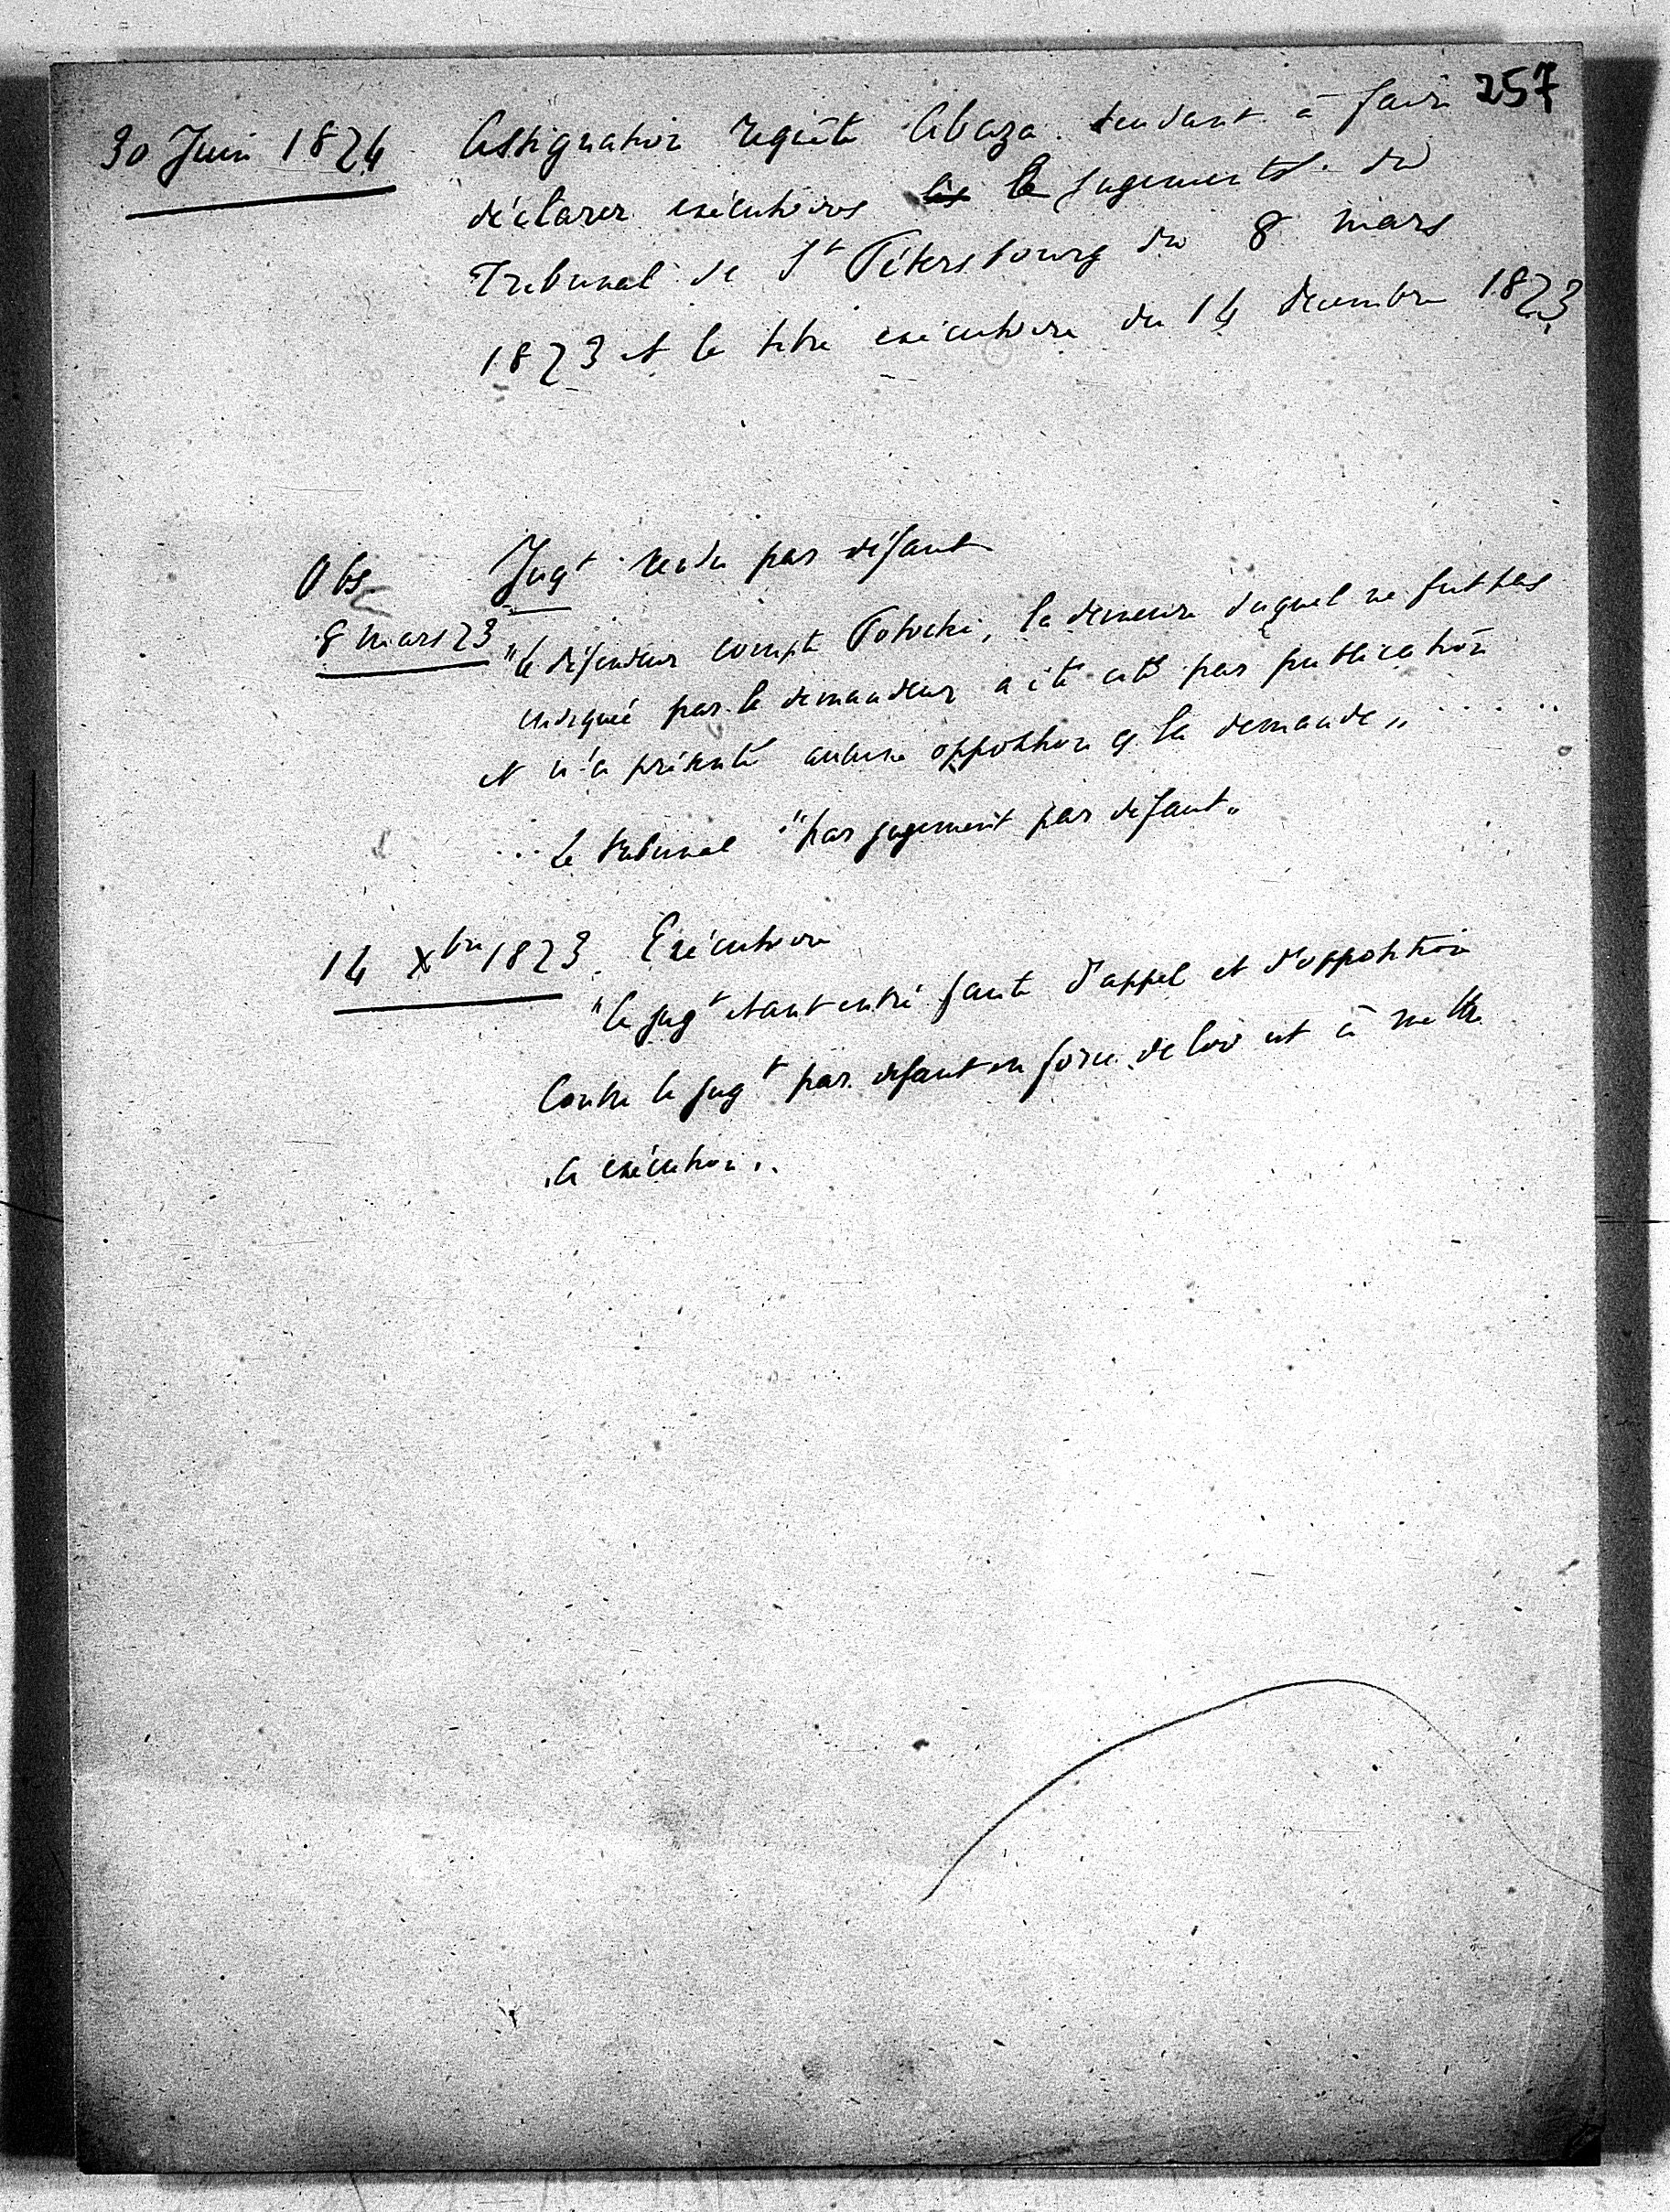 257
30 Juin 1824 Assignation requête Abaza tendant à faire
déclarer exécutoires le jugements du
Tribunal de St Pétersbourg du 8 mars
1823 et le titre exécutoire du 14 décembre 1823
Obs. Jugt rendu par défaut
8 mars 23 "le défendeur compte Potocki, la demeure duquel ne fut pas
indiquée par le demandeur a été cité par publication
et n'a présenté aucune opposition à la demande" .....
... le tribunal "par jugement par défaut"
14 Xbre 1823. Exécutoire
"le jugt étant entré faute d'appel et d'opposition
contre le jugt par défaut en force de loi est à mettre
à exécution".